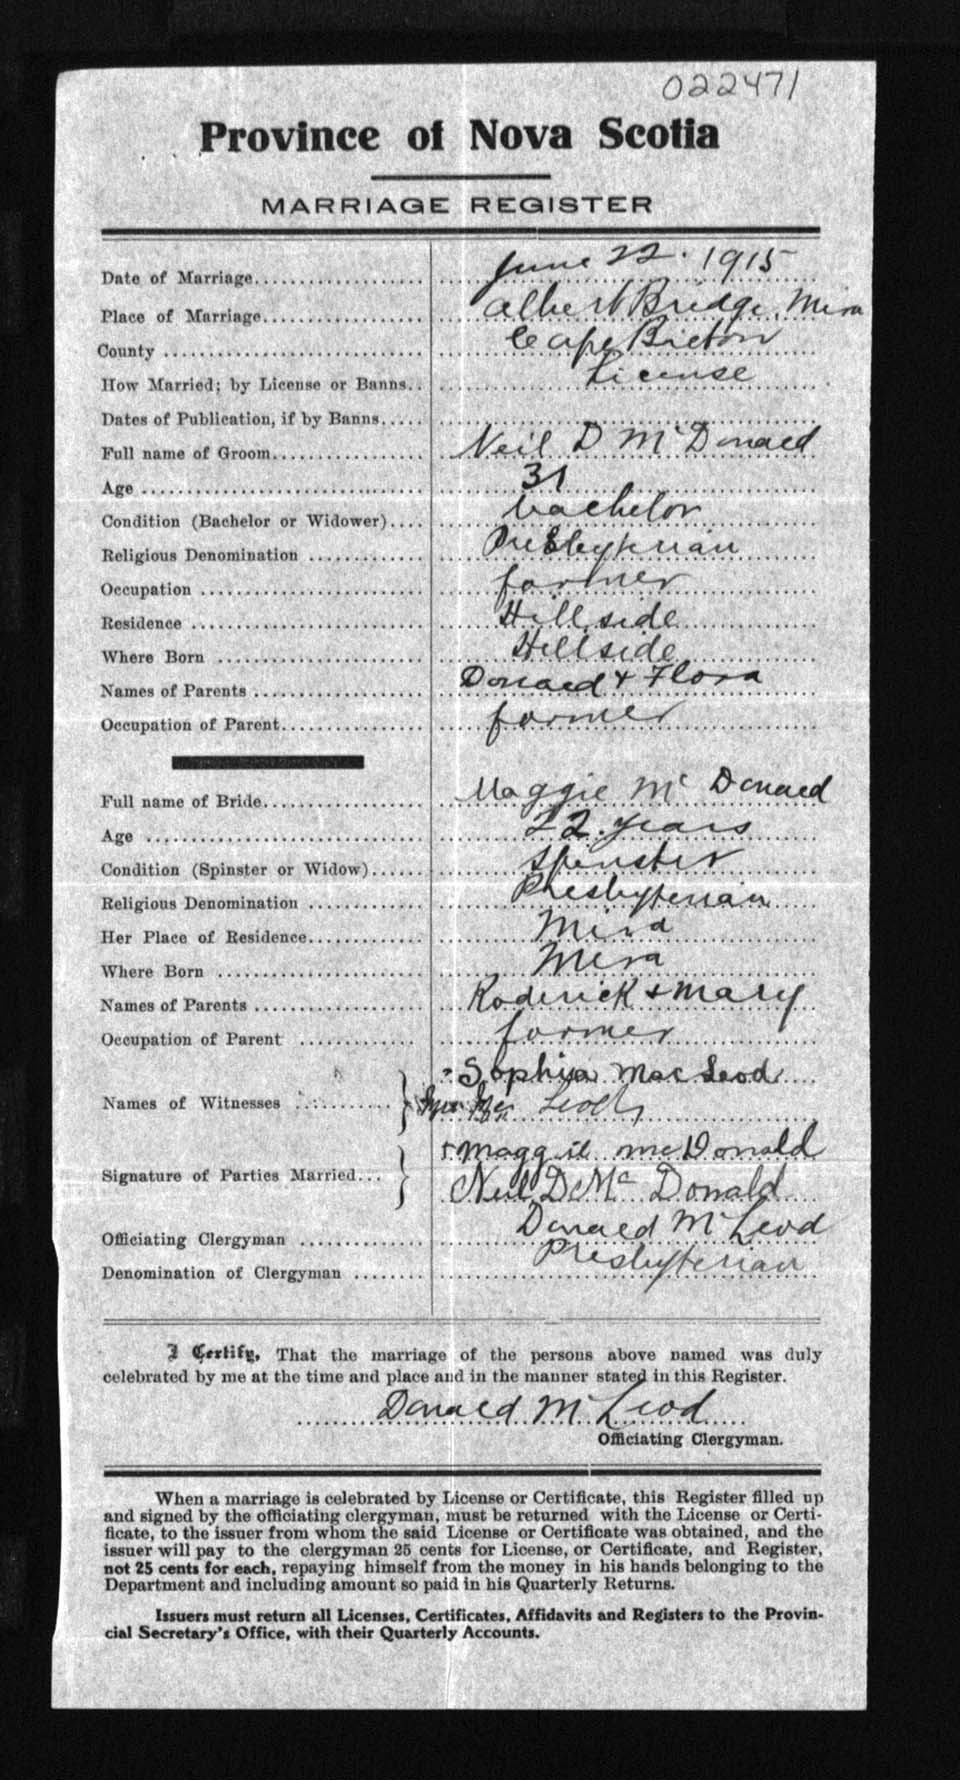 022471
Province of Nova Scotia
MARRIAGE REGISTER
Date of Marriage.................. June 22. 1915
Place of Marriage.................. Albert Bridge, Mira
County .................. Cape Breton
How Married; by License or Banns.. License
Dates of Publication, if by Banns.....
Full name of Groom.................. Neil D McDonald
Age .................. 31
Condition (Bachelor or Widower).... bachelor
Religious Denomination ............. Presbyterian
Occupation .................. farmer
Residence .................. Hillside
Where Born .................. Hillside
Names of Parents .................. Donald + Flora
Occupation of Parent.................. farmer
Full name of Bride.................. Maggie Mc Donald
Age .................. 22. years
Condition (Spinster or Widow)...... Spinster
Religious Denomination ............. Presbyterian
Her Place of Residence............. Mira
Where Born .................. Mira
Names of Parents .................. Roderick + Mary
Occupation of Parent .............. farmer
Names of Witnesses .......... Sophia MacLeod
Leod
Signature of Parties Married... + Maggie McDonald
Neil D Mc Donald
Officiating Clergyman .............. Donald McLeod
Denomination of Clergyman ........ Presbyterian
I Certify, That the marriage of the persons above named was duly
celebrated by me at the time and place and in the manner stated in this Register.
Donald McLeod
Officiating Clergyman.
When a marriage is celebrated by License or Certificate, this Register filled up
and signed by the officiating clergyman, must be returned with the License or Certi-
ficate, to the issuer from whom the said License or Certificate was obtained, and the
issuer will pay to the clergyman 25 cents for License, or Certificate, and Register,
not 25 cents for each, repaying himself from the money in his hands belonging to the
Department and including amount so paid in his Quarterly Returns.
Issuers must return all Licenses, Certificates, Affidavits and Registers to the Provin-
cial Secretary's Office, with their Quarterly Accounts.